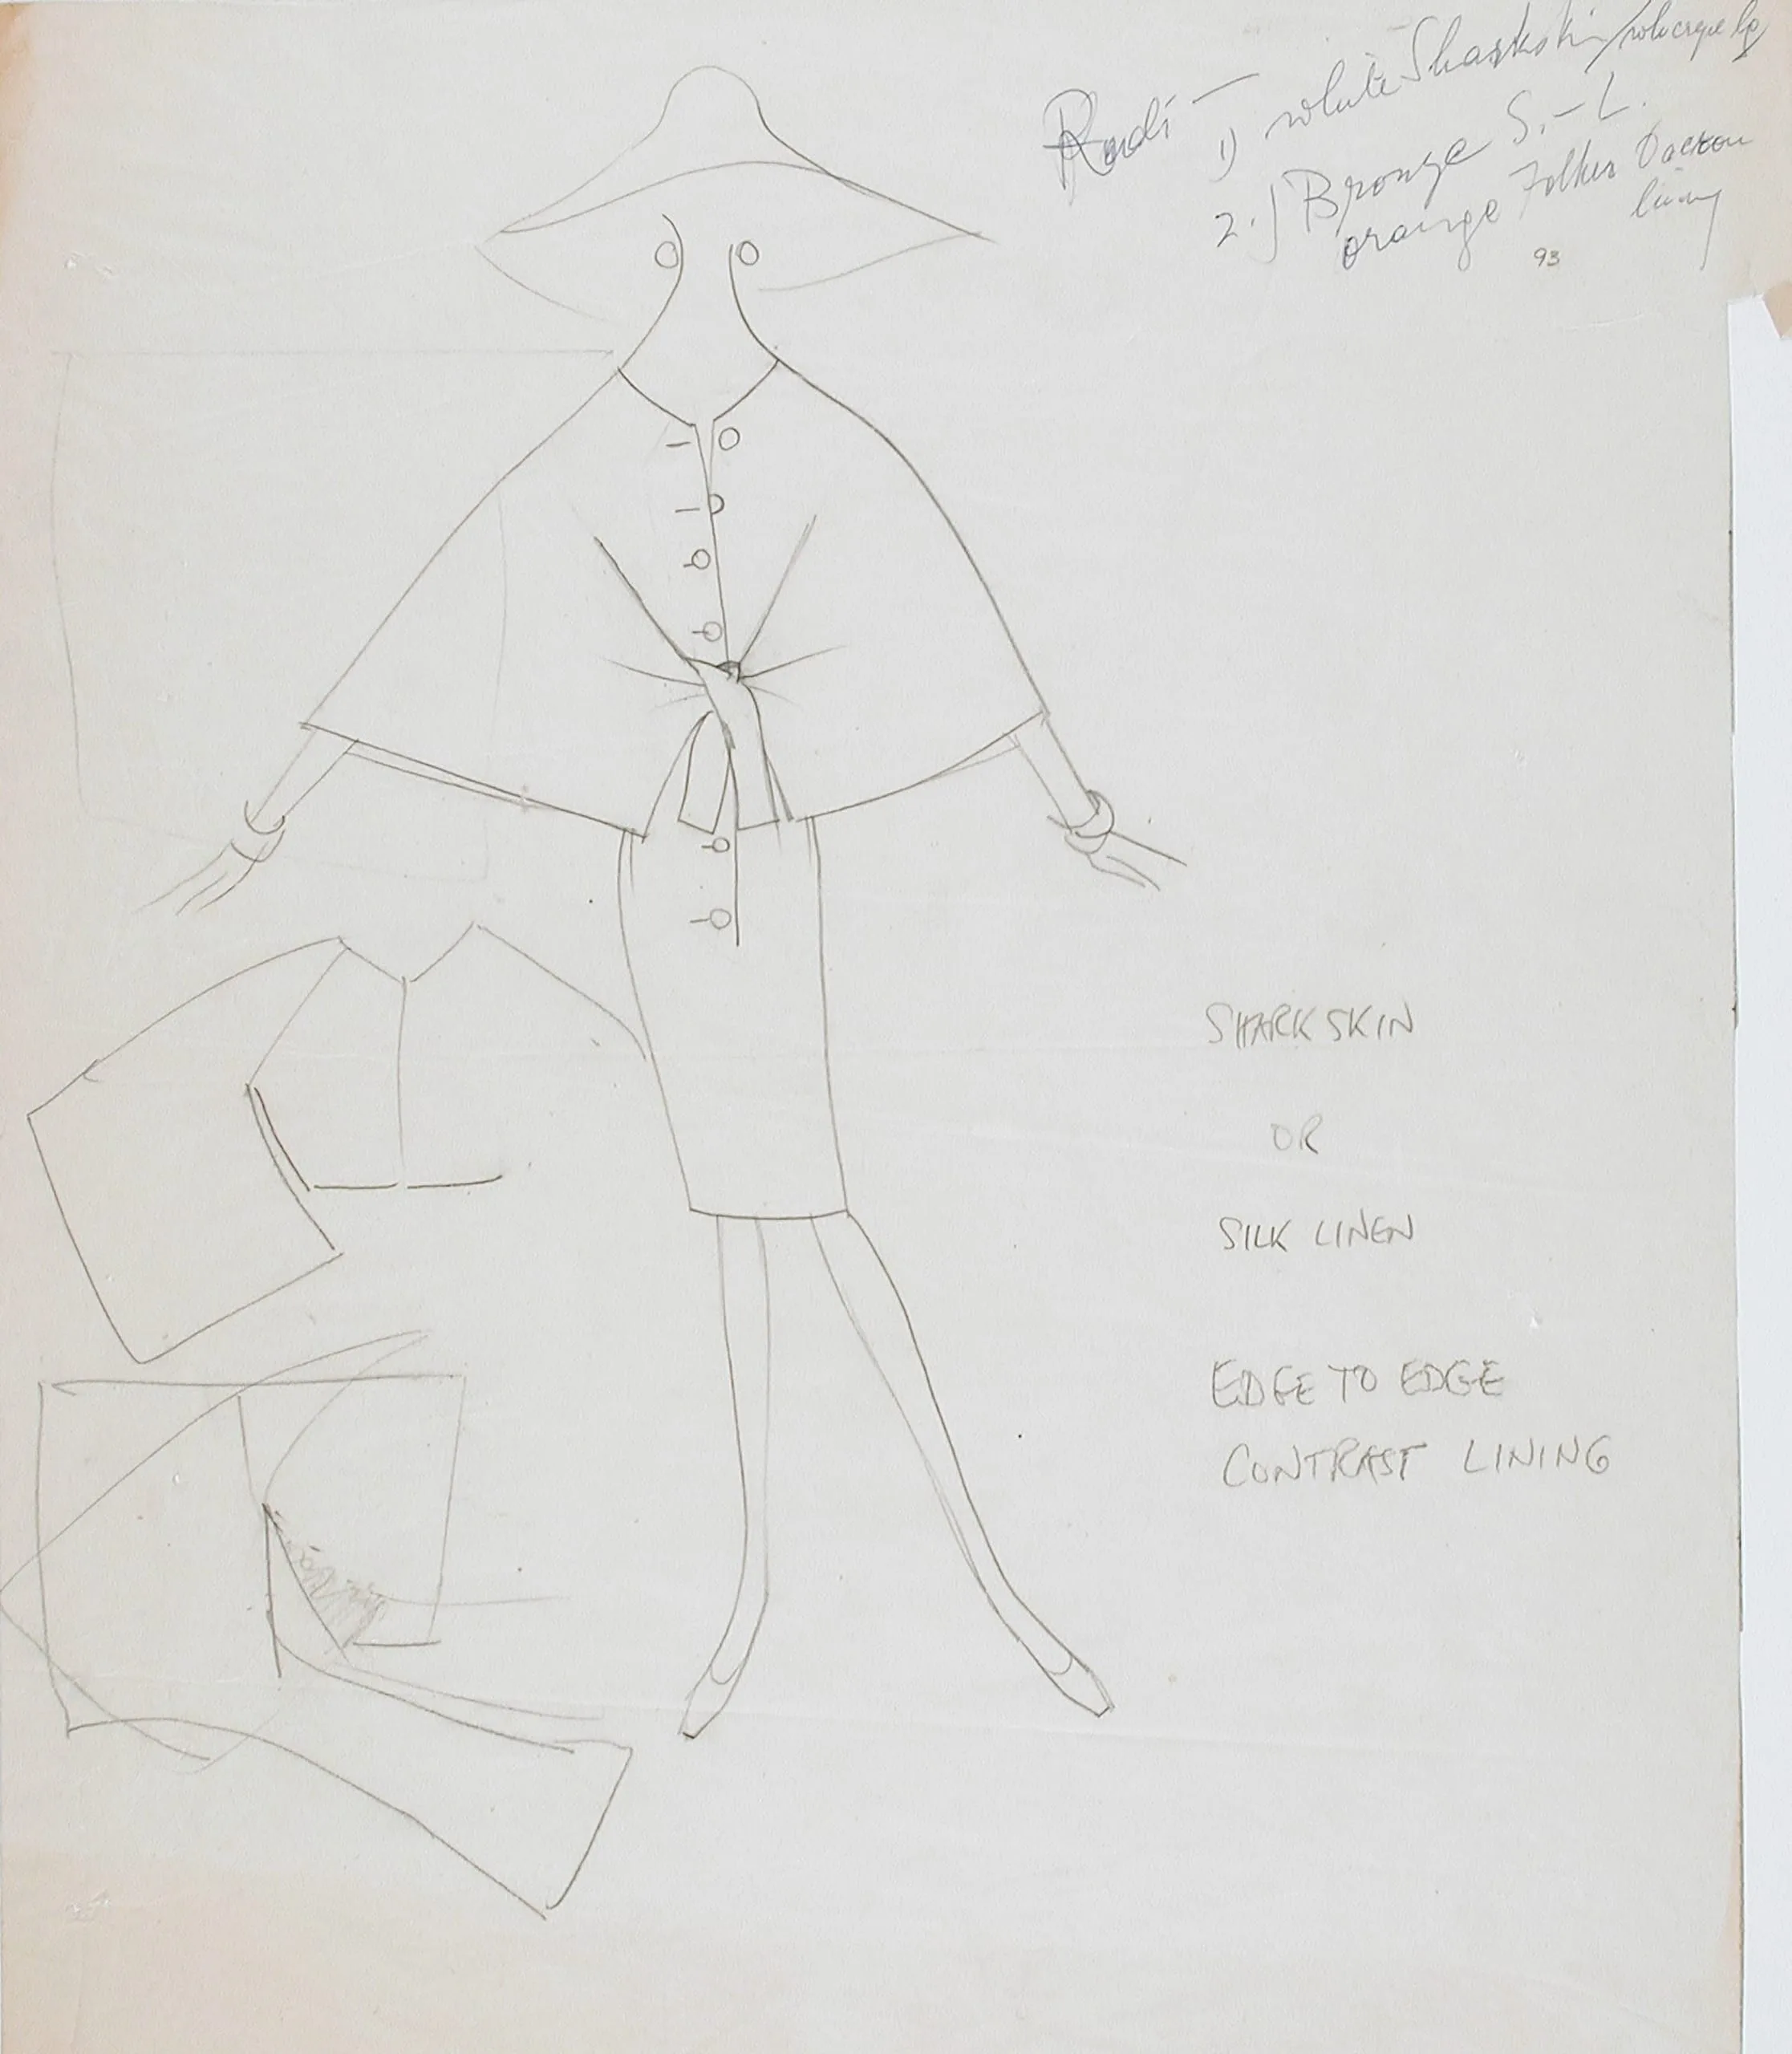 Rudi —
1) white Sharkskin /
2.) Bronze S. – L.
orange Dacron
lining
93
SHARKSKIN
OR
SILK LINEN
EDGE TO EDGE
CONTRAST LINING